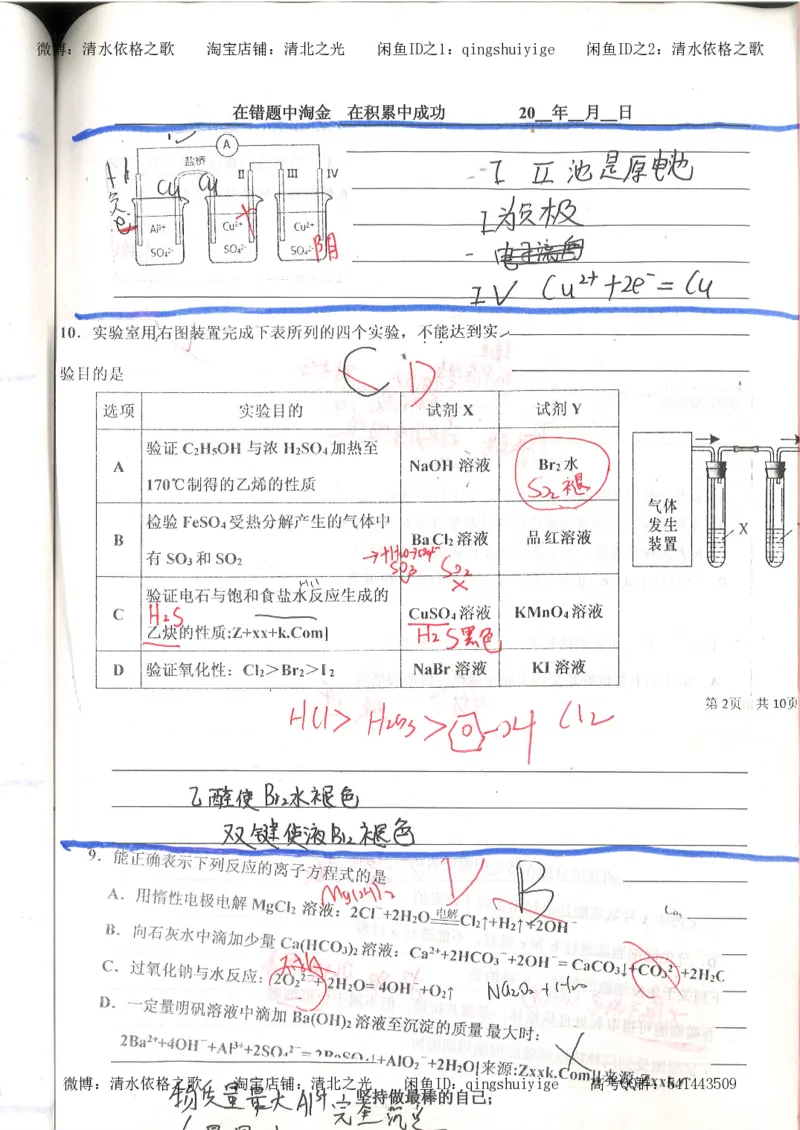 微博：清水依格之歌 淘宝店铺：清北之光 闲鱼ID之1：qingshuiyige 闲鱼ID之2：清水依格之歌
在错题中淘金 在积累中成功 20__年__月__日
A
盐桥
I II III IV
Cu Cu
Al³⁺ Cu²⁺ Cu²⁺
SO₄²⁻ SO₄²⁻ SO₄²⁻
阴
I II 池是原电池
I为负极
IV Cu²⁺+2e⁻=Cu
10．实验室用右图装置完成下表所列的四个实验，不能达到实
验目的是
C D
选项 实验目的 试剂 X 试剂 Y
A 验证 C₂H₅OH 与浓 H₂SO₄ 加热至
170℃制得的乙烯的性质 NaOH 溶液 Br₂ 水
SO₂褪
B 检验 FeSO₄ 受热分解产生的气体中
有 SO₃ 和 SO₂ BaCl₂ 溶液 品红溶液
SO₃ SO₂
C 验证电石与饱和食盐水反应生成的
乙炔的性质:Z+xx+k.Com] CuSO₄ 溶液 KMnO₄ 溶液
H₂S H₂S黑色
D 验证氧化性：Cl₂＞Br₂＞I₂ NaBr 溶液 KI 溶液
气体
发生
装置
X
第 2页 共 10页
乙醛使Br₂水褪色
双键使液Br₂褪色
9．能正确表示下列反应的离子方程式的是
B
Mg(OH)₂
A．用惰性电极电解 MgCl₂ 溶液：2Cl⁻+2H₂O 电解 Cl₂↑+H₂↑+2OH⁻
B．向石灰水中滴加少量 Ca(HCO₃)₂ 溶液：Ca²⁺+2HCO₃⁻+2OH⁻= CaCO₃↓+CO₃²⁻+2H₂O
C．过氧化钠与水反应：2O₂²⁻+2H₂O= 4OH⁻+O₂↑
Na₂O₂+H₂O
D．一定量明矾溶液中滴加 Ba(OH)₂ 溶液至沉淀的质量最大时：
2Ba²⁺+4OH⁻+Al³⁺+2SO₄²⁻= 2BaSO₄↓+AlO₂⁻+2H₂O[来源:Zxxk.Com][来源:Zxxk
微博：清水依格之歌 淘宝店铺：清北之光 闲鱼ID：qingshuiyige
物质量最大Al³⁺完全沉淀
坚持做最棒的自己；